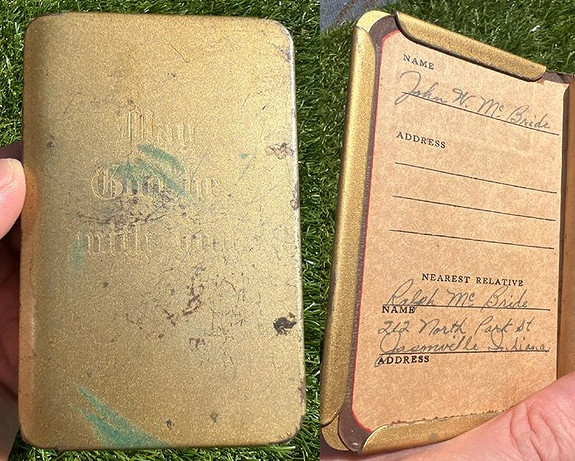 May
God be
with you
NAME
John W. Mc Bride
ADDRESS
NEAREST RELATIVE
Ralph Mc Bride
NAME
212 North Park St
Jasonville Indiana
ADDRESS